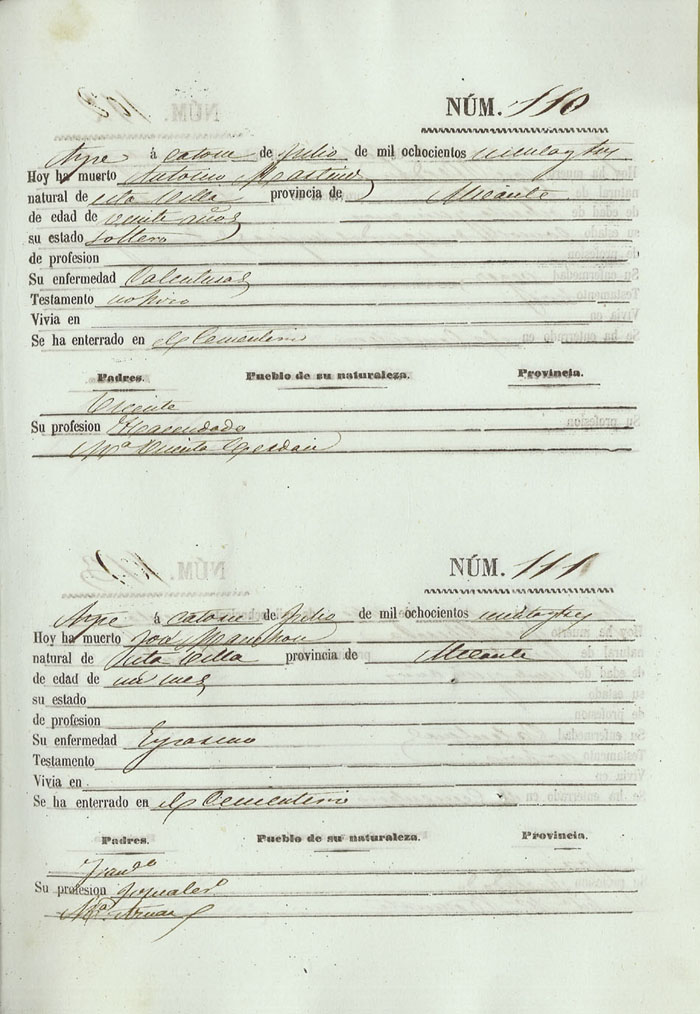 NÚM. 110
Aspe á catorce de Julio de mil ochocientos
Hoy ha muerto Antonio Martinez
natural de esta Villa provincia de Alicante
de edad de veinte años
su estado soltero
de profesion
Su enfermedad Calenturas
Testamento no hizo
Vivia en
Se ha enterrado en el Cementerio
Padres. Pueblo de su naturaleza. Provincia.
Vicente
Su profesion Hacendado
Mª Vicenta Cerdan
NÚM. 111
Aspe á catorce de Julio de mil ochocientos
Hoy ha muerto Jose Manchon
natural de esta Villa provincia de Alicante
de edad de un mes
su estado
de profesion
Su enfermedad
Testamento
Vivia en
Se ha enterrado en el Cementerio
Padres. Pueblo de su naturaleza. Provincia.
Franco
Su profesion Jornalero
Mª